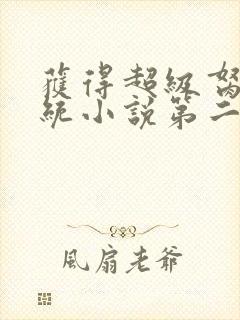 獲得超級努
統小說第二
風扇老爺